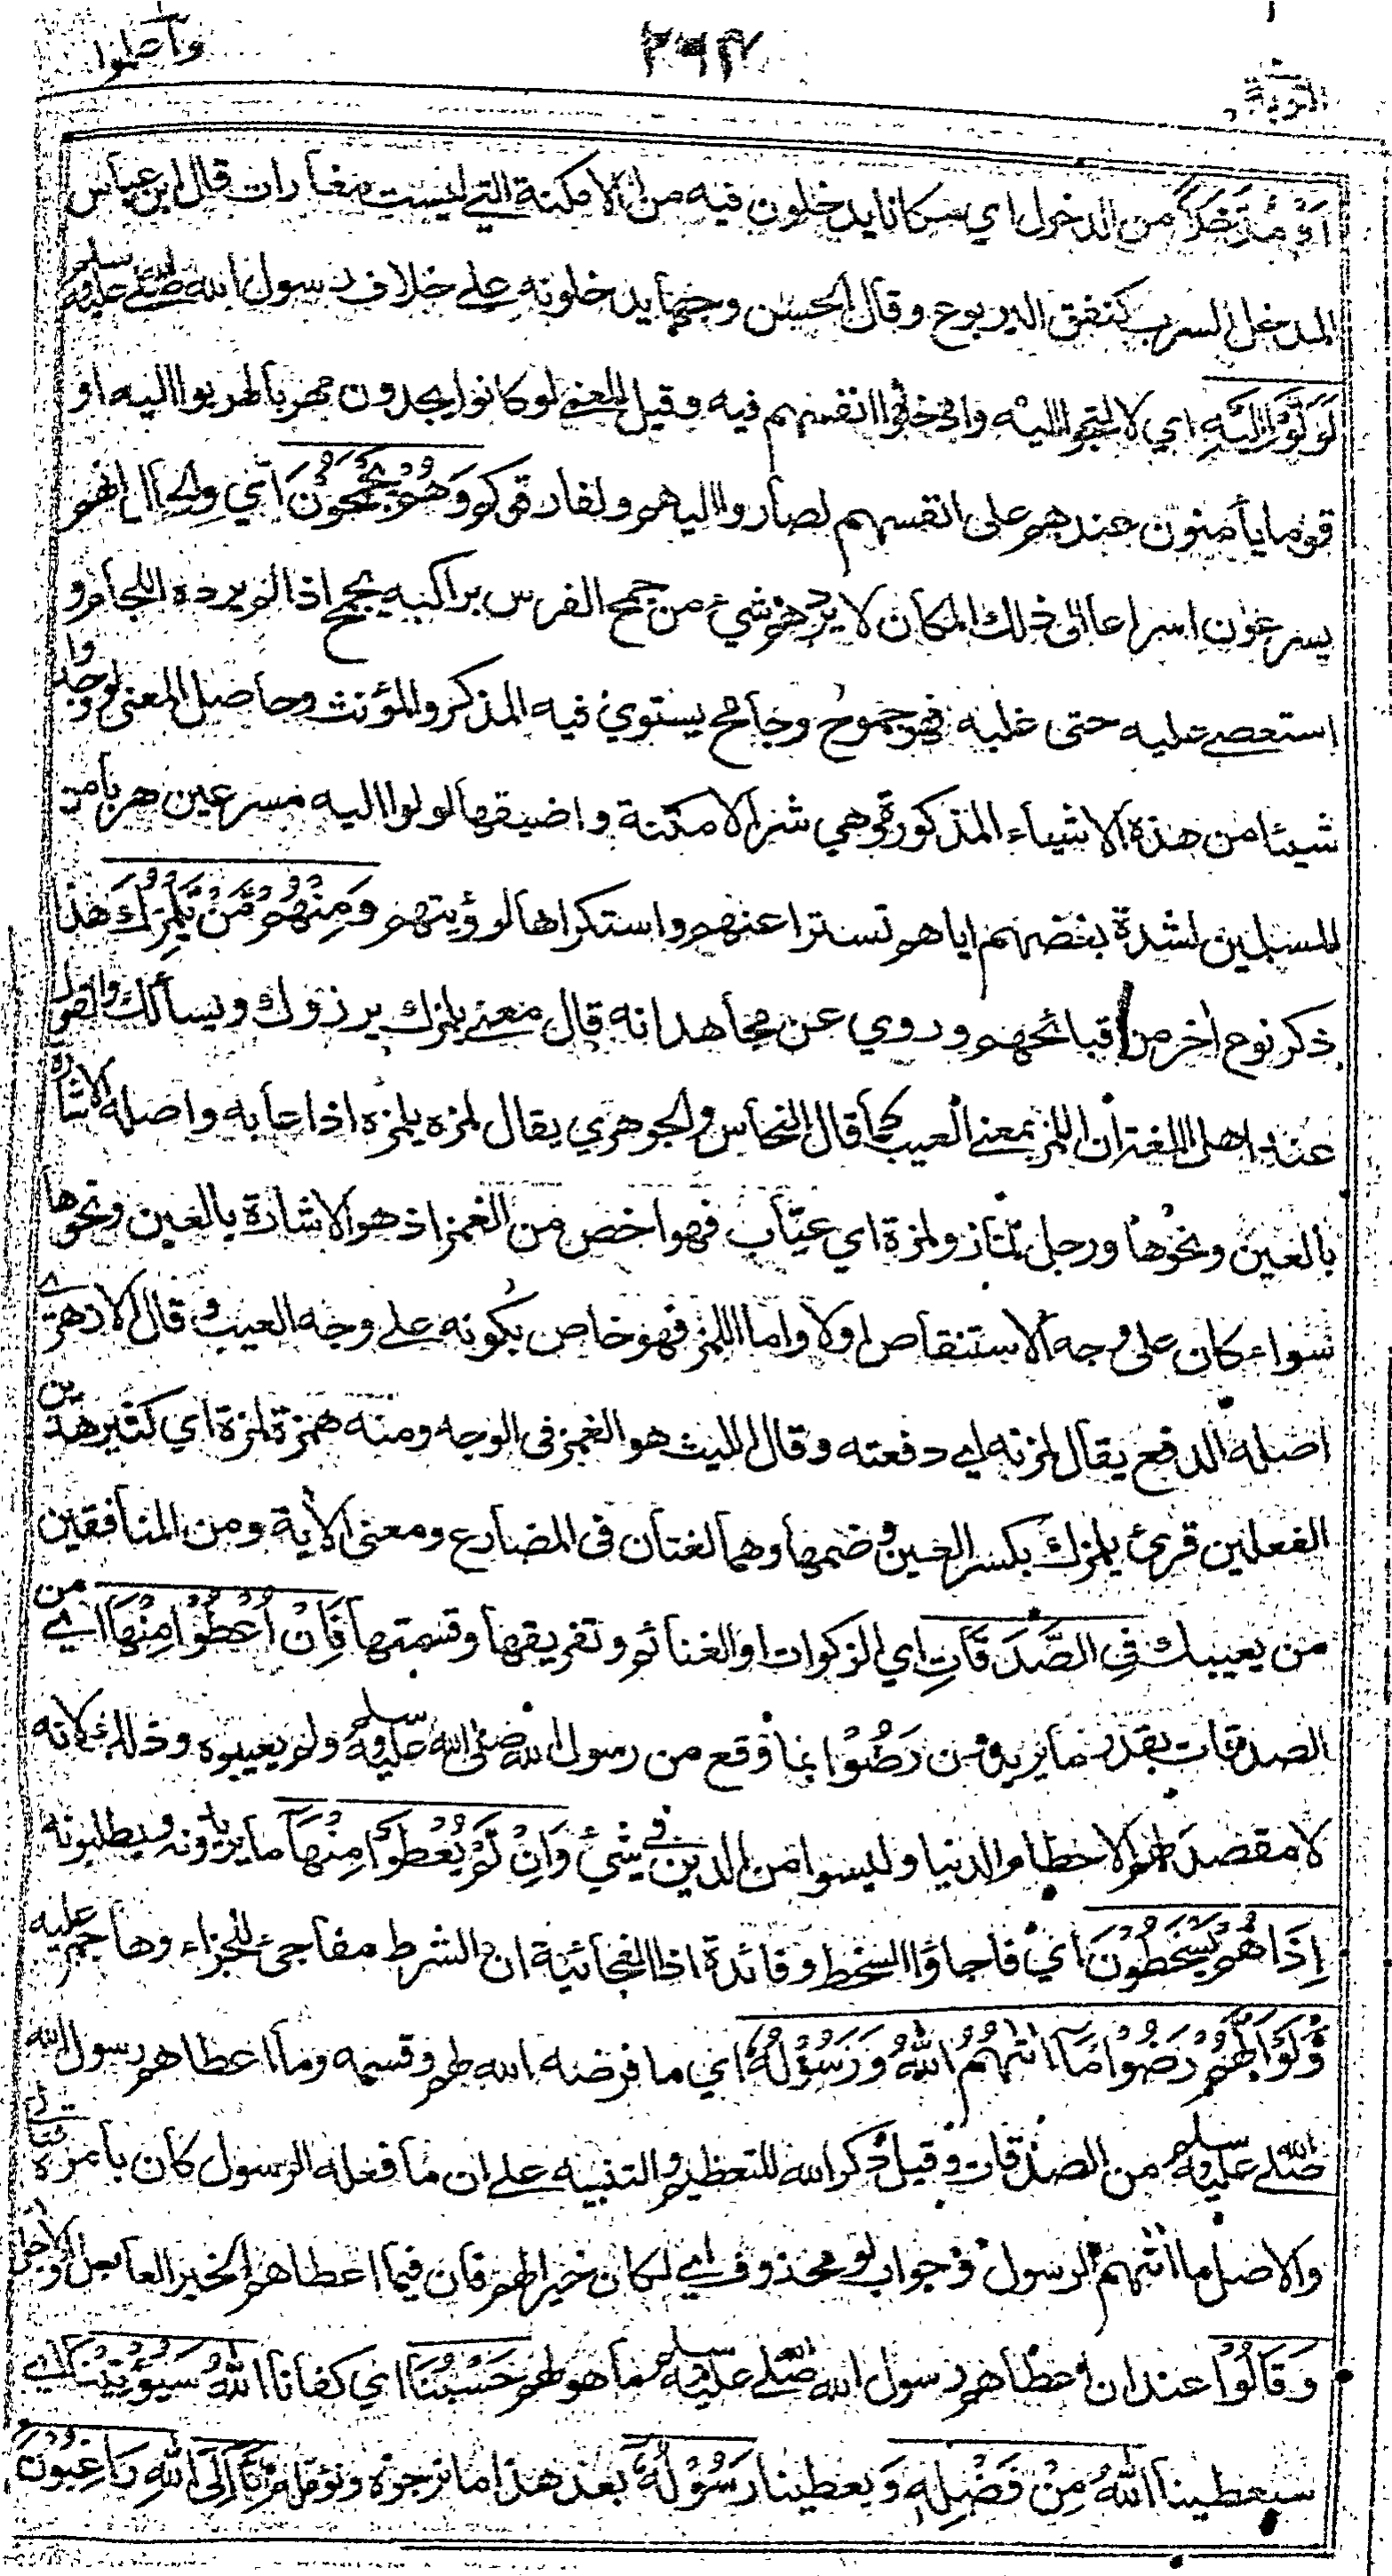 التوبة ٢٩٢ واعلموا
اَوْ مُدَّخَلًا من الدخول اي مكانا يدخلون فيه من الامكنة التي ليست مغارات قال ابن عباس
المدخل السرب كنفق اليربوع وقال الحسن وجها يدخلونه على خلاف رسول الله صلى الله عليه وسلم
لَوَلَّوْا اِلَيْهِ اي لالتجؤا اليه وادخلوا انفسهم فيه وقيل المعنى لو كانوا يجدون مهربا لهربوا اليه او
قوما يأمنون عندهم على انفسهم لصاروا اليهم ولفارقوكم وَهُمْ يَجْمَحُوْنَ اي والحال انهم
يسرعون اسراعا الى ذلك المكان لا يردهم شيء من جمح الفرس براكبه يجمح اذا لم يرده اللجام و
استعصى عليه حتى غلبه فهو جموح وجامح يستوي فيه المذكر والمؤنث وحاصل المعنى لو وجدوا
شيئا من هذه الاشياء المذكورة وهي شر الامكنة واضيقها لولوا اليه مسرعين هربا من
المسلمين لشدة بغضهم اياهم تسترا عنهم واستكراها لرؤيتهم وَمِنْهُمْ مَّنْ يَّلْمِزُكَ هذا
ذكر نوع اخر من قبائحهم وروي عن مجاهد انه قال معنى يلمزك يرزؤك ويسألك والقول
عند اهل اللغة ان اللمز بمعنى العيب كما قال النحاس والجوهري يقال لمزه يلمزه اذا عابه واصله الاشارة
بالعين ونحوها ورجل لماز ولمزة اي عيّاب فهو اخص من الغمز اذ هو الاشارة بالعين ونحوها
سواء كان على وجه الاستنقاص او لا واما اللمز فهو خاص بكونه على وجه العيب وقال الازهري
اصله الدفع يقال لمزته اي دفعته وقال الليث هو الغمز فى الوجه ومنه همزة لمزة اي كثير هذين
الفعلين قرئ يلمزك بكسر العين وضمها وهما لغتان فى المضارع ومعنى الأية ومن المنافقين
من يعيبك فِى الصَّدَقَاتِ اي الزكوات او الغنائم وتفريقها وقسمتها فَاِنْ اُعْطُوْا مِنْهَا اي من
الصدقات بقدر ما يريدون رَضُوْا بما وقع من رسول الله صلى الله عليه وسلم ولم يعيبوه وذلك لانه
لا مقصد لهم الا حطام الدنيا وليسوا من الدين في شيئ وَاِنْ لَّمْ يُعْطَوْا مِنْهَا ما يريدونه ويطلبونه
اِذَا هُمْ يَسْخَطُوْنَ اي فاجاؤا السخط وفائدة اذا الفجائية ان الشرط مفاجئ للجزاء وهاجم عليه
وَلَوْ اَنَّهُمْ رَضُوْا مَآ اٰتٰهُمُ اللهُ وَرَسُوْلُهُ اي ما فرضه الله لهم وقسمه وما اعطاهم رسول الله
صلى الله عليه وسلم من الصدقات وقيل ذكر الله للتعظيم والتنبيه على ان ما فعله الرسول كان بأمره تعالى
والاصل ما اتٰهم الرسول وجواب لو محذوف اي لكان خيرا لهم فان فيما اعطاهم الخير العاجل والاجل
وَقَالُوْا عند ان اعطاهم رسول الله صلى الله عليه وسلم ما هو لهم حَسْبُنَا اي كفانا اللهُ سَيُؤْتِيْنَا اي
سيعطينا اللهُ مِنْ فَضْلِهٖ وَ يعطينا رَسُوْلُهٗ بعد هذا ما نرجوه ونؤمله اِنَّآ اِلَى اللهِ رَاغِبُوْنَ